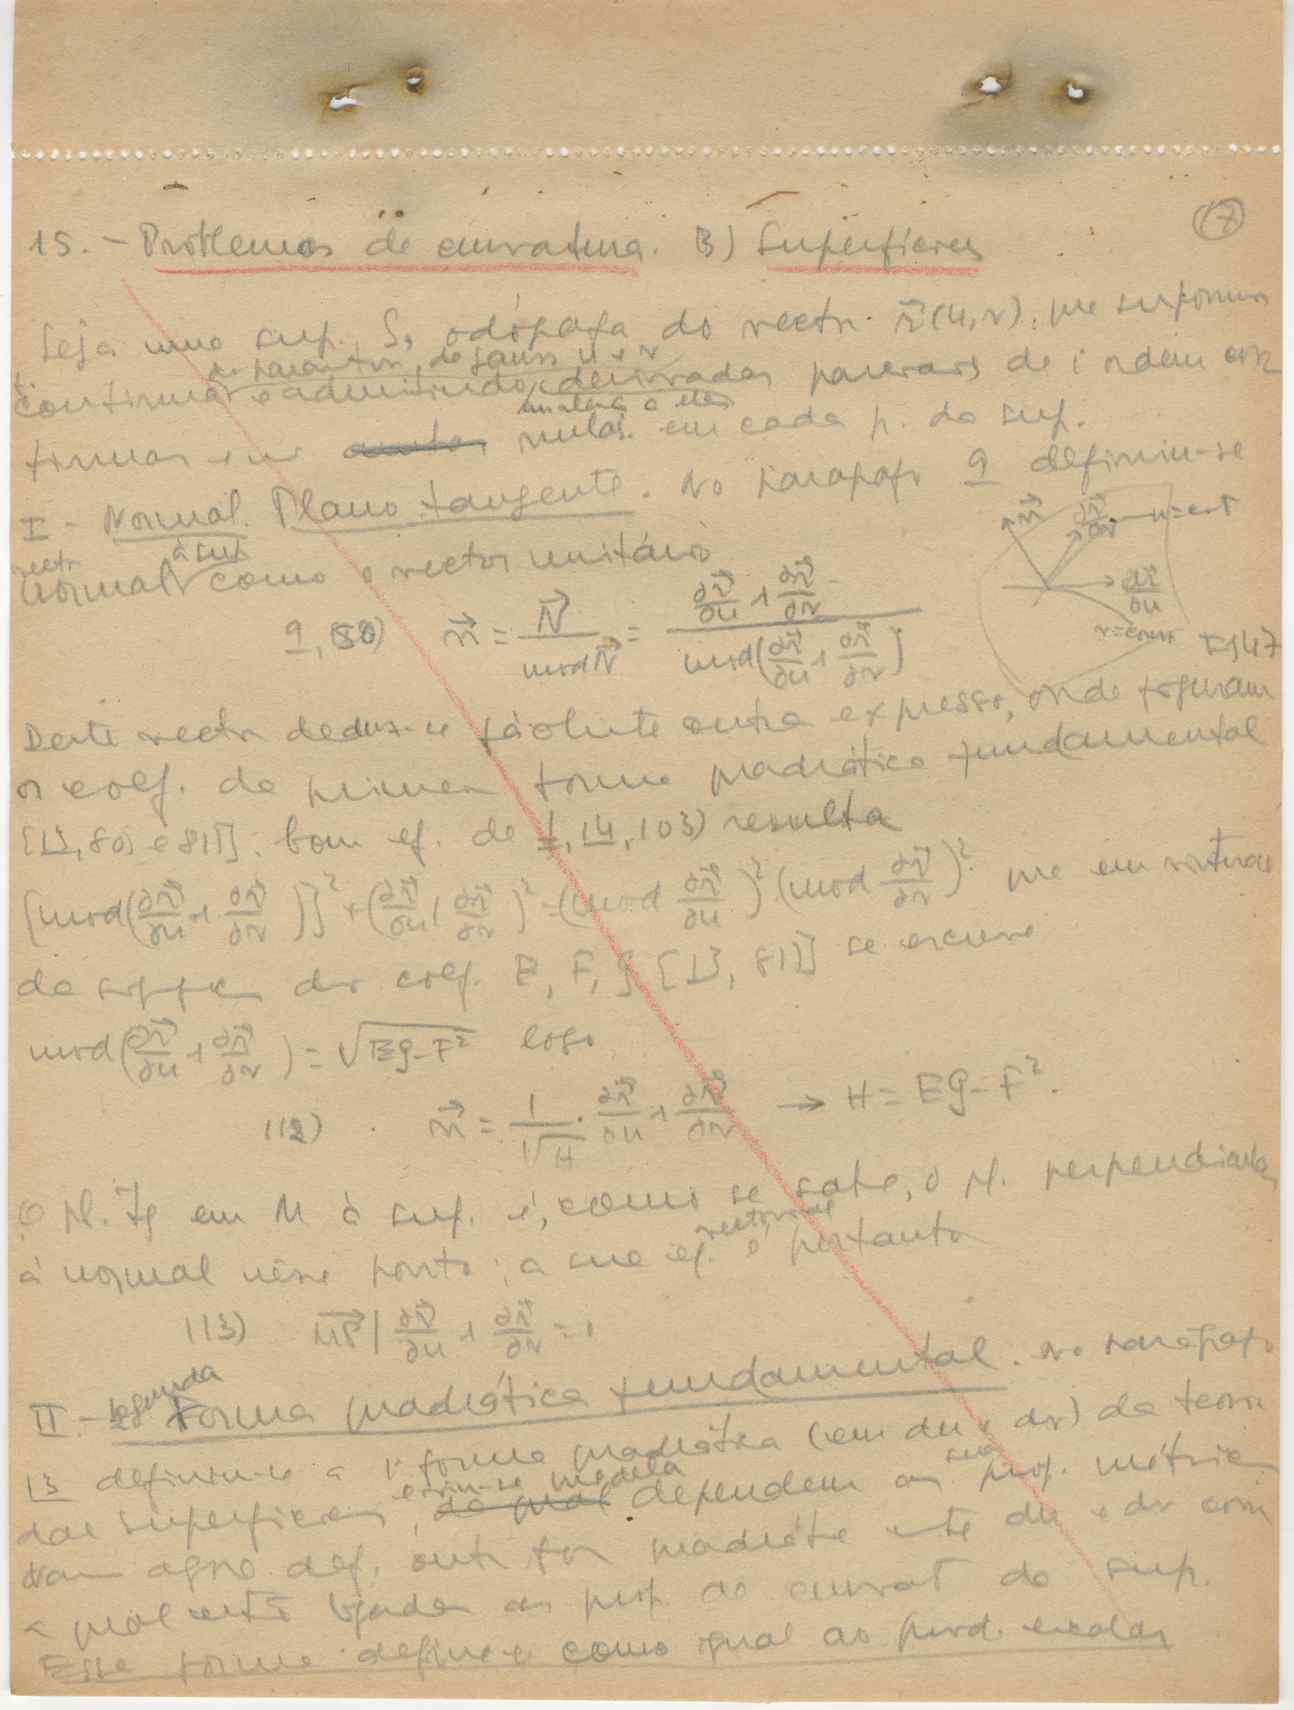 17
15. - Problemas de curvatura. B) Superfícies
Seja uma sup. S, odógrafa do vector r⃗(u,v), que supomos
de parâmetros de Gauss u e v
contínuo e admitindo derivadas parciais de 1ª ordem con
em relação a eles
tínuas e não nulas em cada p. da sup.
I - Normal. Plano tangente. No parágrafo 9 definiu-se
vector normal à sup. como o vector unitário
9, 58) n⃗ = N⃗ / mod N⃗ = (∂r⃗/∂u ∧ ∂r⃗/∂v) / mod(∂r⃗/∂u ∧ ∂r⃗/∂v)
n⃗ ∂r⃗/∂v u=const
∂r⃗/∂u
v=const
Fg 47
Deste vector deduz-se fàcilmente outra expressão, onde figuram
os coef. da primeira forma quadrática fundamental
[13, 80) e 81)]. Com ef. de 1, 14, 103) resulta
[mod(∂r⃗/∂u ∧ ∂r⃗/∂v)]² + (∂r⃗/∂u | ∂r⃗/∂v)² = (mod ∂r⃗/∂u)² (mod ∂r⃗/∂v)² que em virtude
da coef. E, F, G [13, 81)] se escreve
mod(∂r⃗/∂u ∧ ∂r⃗/∂v) = √EG-F² logo
112) n⃗ = 1/√H · ∂r⃗/∂u ∧ ∂r⃗/∂v → H = EG-F².
O pl. Tg em M à sup. é, como se sabe, o pl. perpendicular
à normal nesse ponto; a sua eq. vectorial é portanto
113) MP⃗ | ∂r⃗/∂u ∧ ∂r⃗/∂v = 0
II - Segunda Forma quadrática fundamental. No parágrafo
13 definiu-se a 1ª forma quadrática (em du e dv) da teoria
das superfícies, da qual dependem as suas prop. métricas
Vam agora def. outra for quadrát em du e dv com
a qual estão ligadas as prop. de curvat da sup.
Essa forma define-se como igual ao prod. escalar